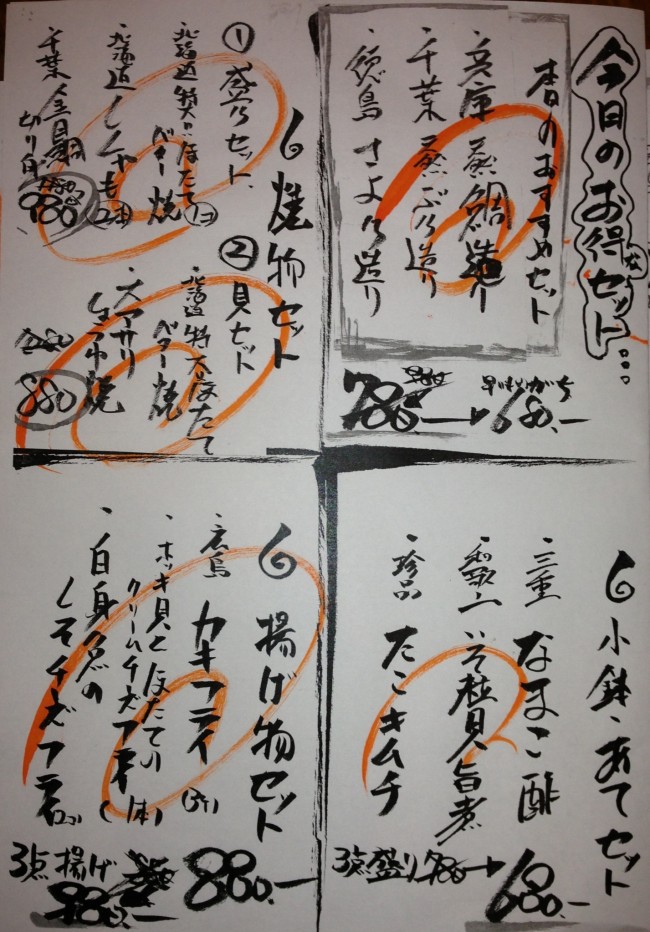 今日のお得なセット...
春のおすすめセット
・兵庫 蒸鯛造り
・千葉 天ぶり造り
・徳島 さより造り
780.-
早いものがち
680.-
焼物セット
①盛りセット
・北海道 特大ほたて
バター焼
・北海道 ししゃも
・千葉 金目鯛
切り身
980
②貝セット
・北海道 特大ほたて
バター焼
・大アサリ
焼
880
小鉢・あてセット
・三重 なまこ酢
・和歌山 いそ粒貝旨煮
・珍品 たこキムチ
3点盛り 780
680.-
揚げ物セット
・広島 カキフライ
・ホッキ貝とほたての
クリームチーズフライ (1本)
・白身魚の
しそチーズフライ
3点揚げ
980.-
880.-